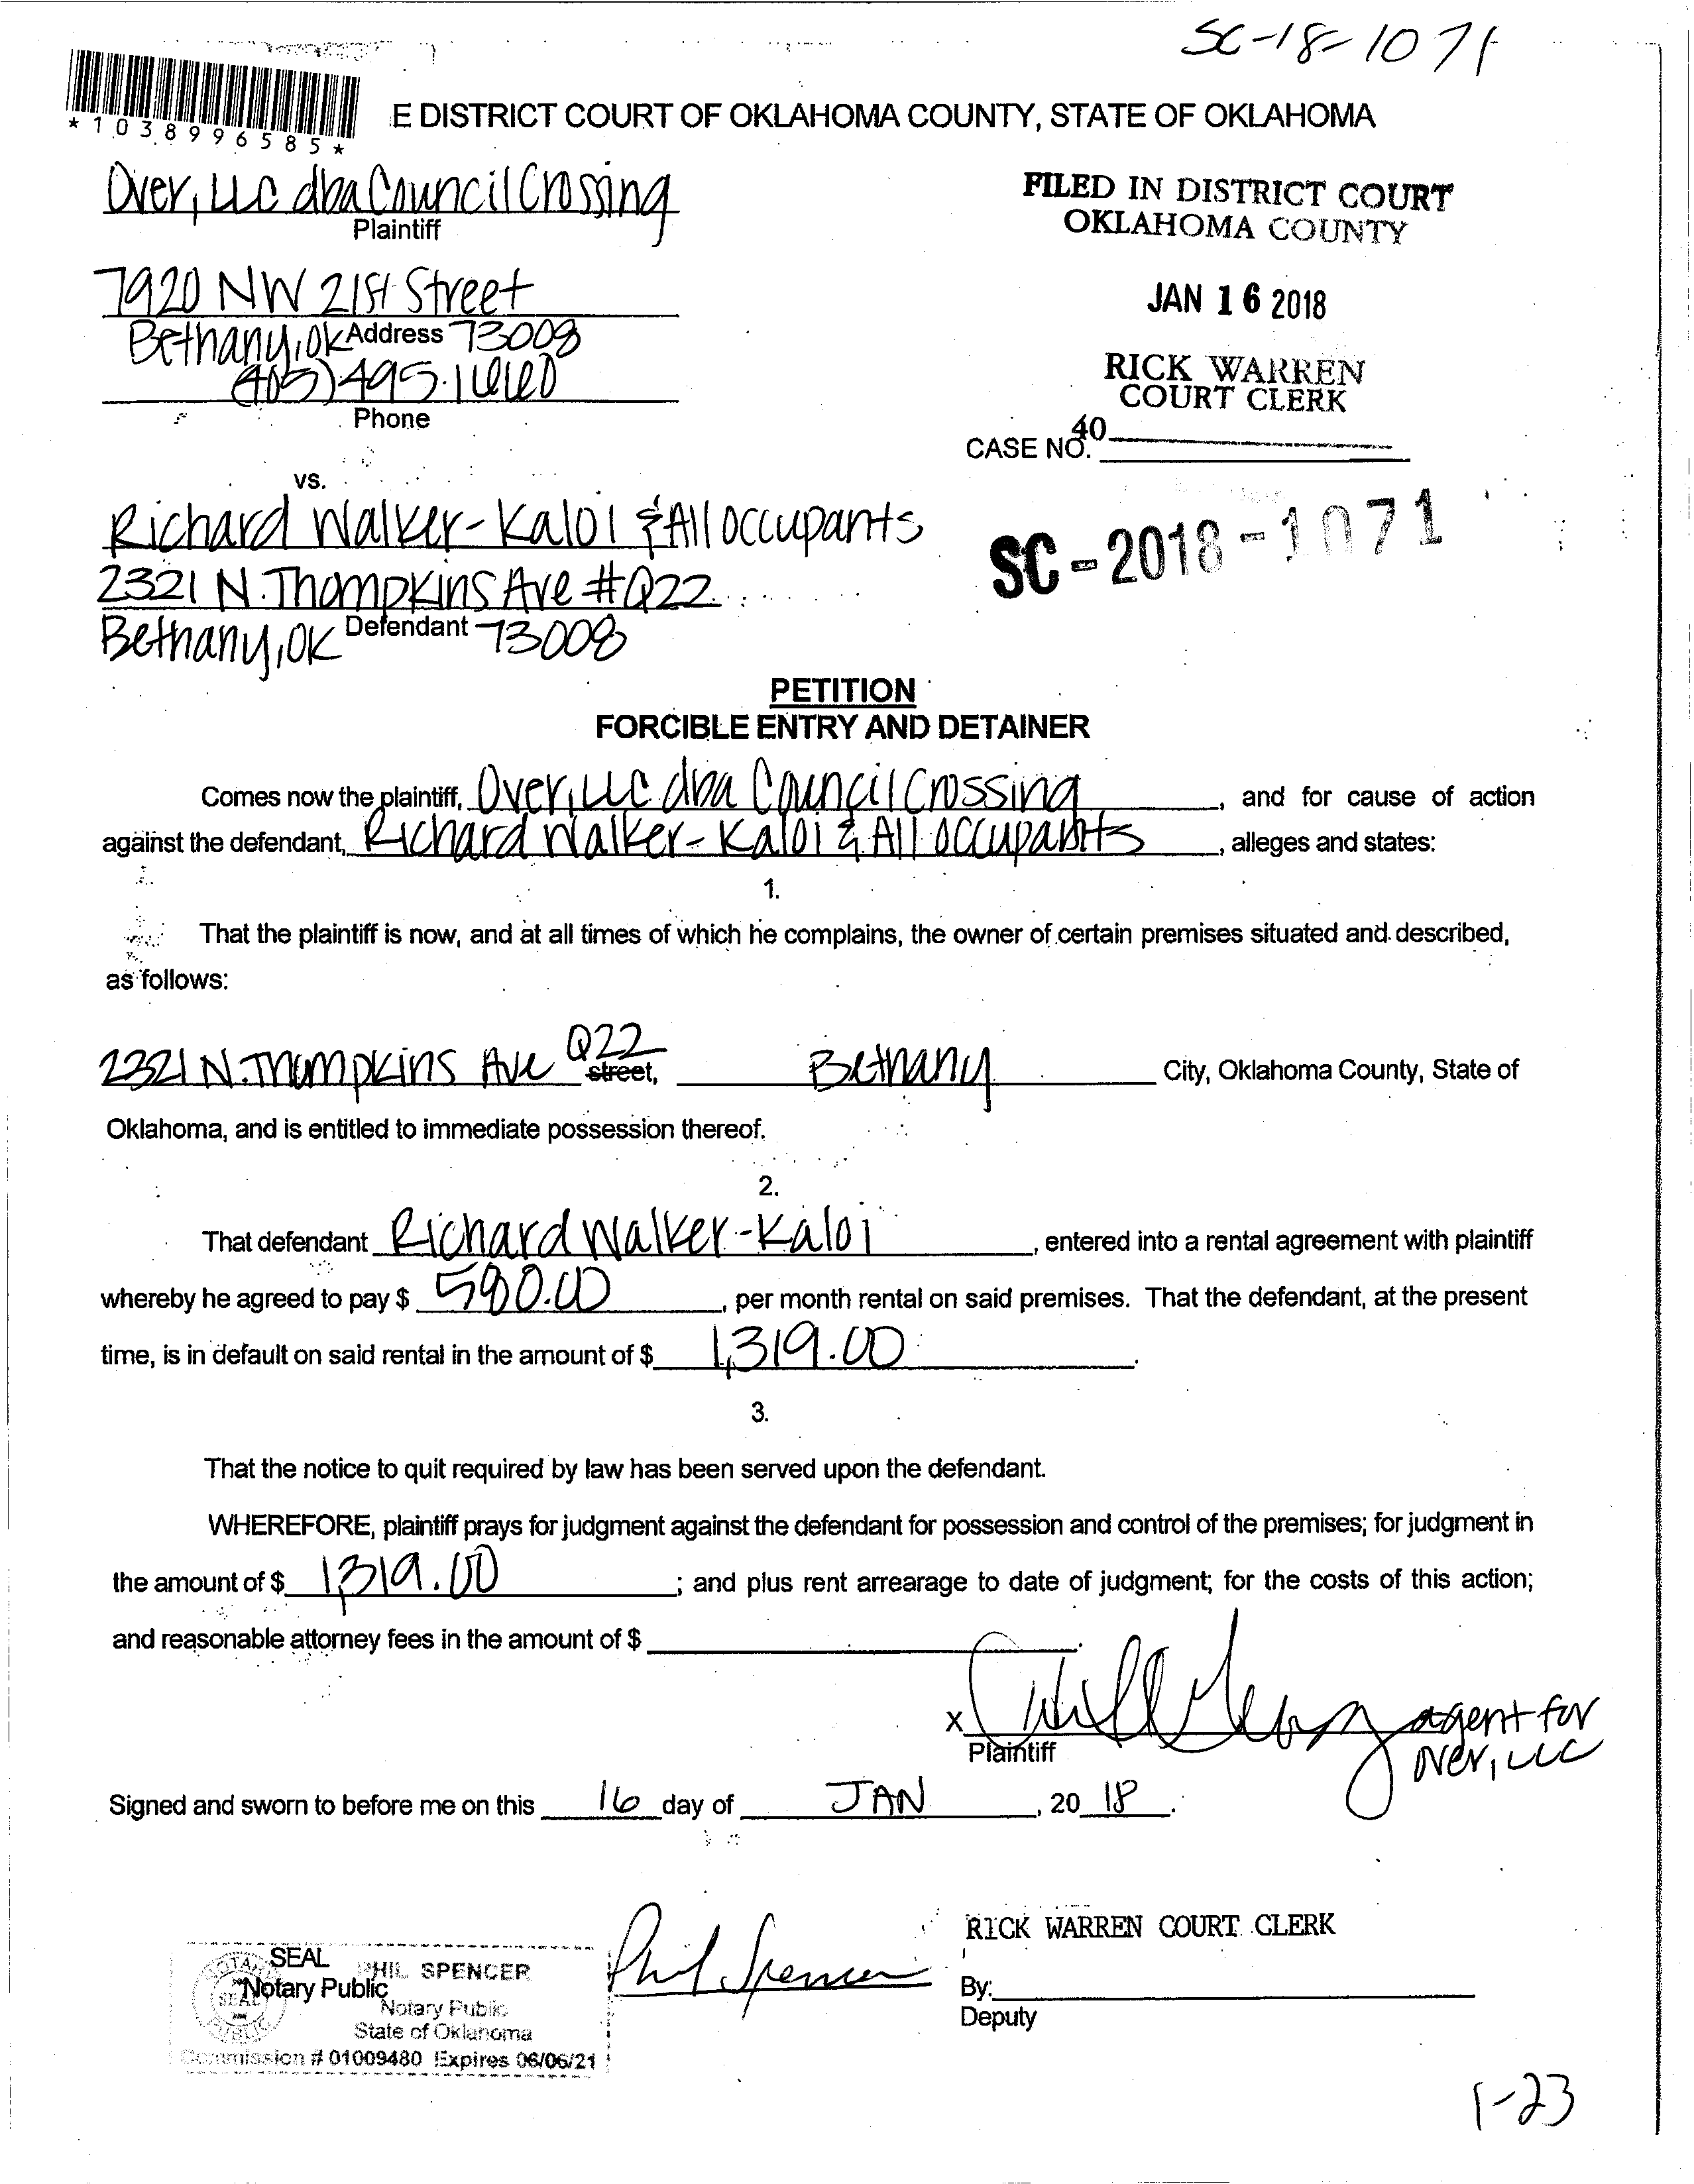 SC-18-1071
*1038996585*
E DISTRICT COURT OF OKLAHOMA COUNTY, STATE OF OKLAHOMA
Over, LLC dba Council Crossing
Plaintiff
FILED IN DISTRICT COURT
OKLAHOMA COUNTY
7920 NW 21st Street
JAN 16 2018
Bethany, OK Address 73008
(405) 495.1660
Phone
RICK WARREN
COURT CLERK
40
CASE NO.
vs.
Richard Walker-Kaloi & All occupants
SC-2018-1071
2321 N. Thompkins Ave #Q22
Bethany, OK Defendant 73008
PETITION
FORCIBLE ENTRY AND DETAINER
Comes now the plaintiff, Over, LLC dba Council Crossing, and for cause of action
against the defendant, Richard Walker-Kaloi & All occupants, alleges and states:
1.
That the plaintiff is now, and at all times of which he complains, the owner of certain premises situated and described,
as follows:
2321 N. Thompkins Ave Q22 street, Bethany City, Oklahoma County, State of
Oklahoma, and is entitled to immediate possession thereof.
2.
That defendant Richard Walker-Kaloi, entered into a rental agreement with plaintiff
whereby he agreed to pay $ 590.00, per month rental on said premises. That the defendant, at the present
time, is in default on said rental in the amount of $ 1,319.00.
3.
That the notice to quit required by law has been served upon the defendant.
WHEREFORE, plaintiff prays for judgment against the defendant for possession and control of the premises; for judgment in
the amount of $ 1,319.00; and plus rent arrearage to date of judgment; for the costs of this action;
and reasonable attorney fees in the amount of $
X agent for
Plaintiff Over, LLC
Signed and sworn to before me on this 16 day of JAN, 20 18.
RICK WARREN COURT CLERK
Phil Spencer
By:
Deputy
SEAL
Notary Public
NOTARY
SEAL
PUBLIC
PHIL SPENCER
Notary Public
State of Oklahoma
Commission # 01009480 Expires 06/06/21
1-23